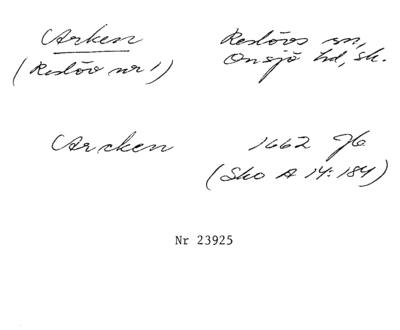 Arken Reslövs sn,
(Reslöv nr 1) Onsjö hd, Sk.
Arcken 1662 Jb
(Sko A 14:184)
Nr 23925